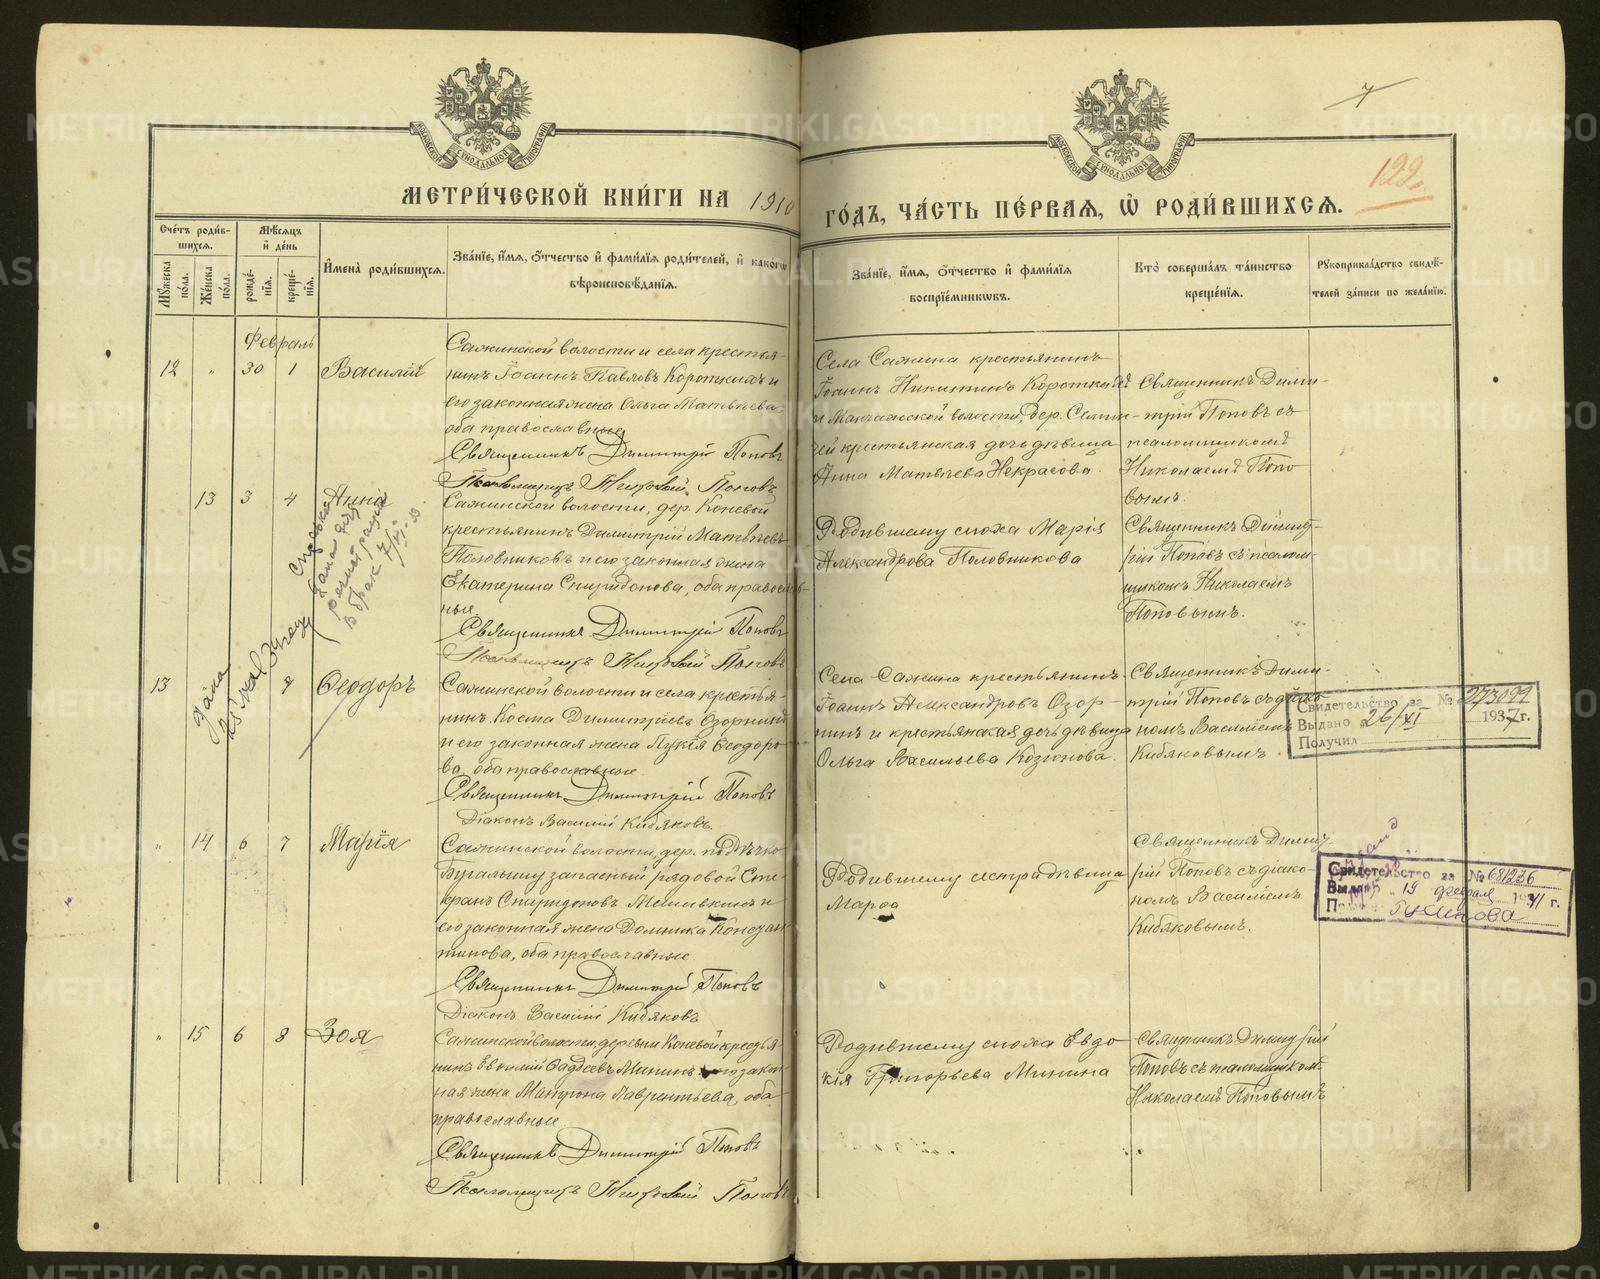 7
122.
МЕТРИ́ЧЕСКОЙ КНИ́ГИ НА 1910 ГО́ДЪ, ЧА́СТЬ ПЕ́РВАЯ, Ѽ РОДИ́ВШИХСЯ.
МОСКОВСКОЙ СѴНОДАЛЬНОЙ ТИПОГРАФІИ
МОСКОВСКОЙ СѴНОДАЛЬНОЙ ТИПОГРАФІИ
Сче́тъ роди́вшихся.
Мꙋ́жеска по́ла.
Же́нска по́ла.
Мѣ́сяцъ и҆ де́нь
рожде́нїя.
креще́нїя.
И҆мена̀ роди́вшихся.
Зва́нїе, и҆́мя, ѻ҆́тчество и҆ фами́лїя роди́телей, и҆ како́гѡ
вѣроисповѣ́данїя.
Зва́нїе, и҆́мя, ѻ҆́тчество и҆ фами́лїя
воспрїе́мникѡвъ.
Кто̀ соверша́лъ та́инство
креще́нїя.
Рꙋкоприкла́дство свидѣ́-
телей за́писи по жела́нїю.
Февраль
12 " 30 1 Василій
Сажинской волости и села крестья-
нинъ Іоаннъ Павловъ Короткихъ и
его законная жена Ольга Матвѣева,
оба православные
Священникъ Димитрій Поповъ
Псаломщикъ Николай Поповъ
Села Сажина крестьянинъ
Іоаннъ Никитинъ Коротких
и Манчажской волости, дер.
крестьянская дочь дѣвица
Анна Матвѣева Некрасова.
Священникъ Дими-
трій Поповъ съ
псаломщикомъ
Николаемъ Попо
вымъ.
13 3 4 Анна
Справка
дана для
регистрации
в брак
Сажинской волости, дер. Коневой
крестьянинъ Димитрій Матвѣевъ
Половниковъ и его законная жена
Екатерина Спиридонова, оба православ-
ные.
Священникъ Димитрій Поповъ
Псаломщикъ Николай Поповъ
Родившему сноха Марія
Александрова Половникова
Священникъ Димит-
рій Поповъ съ псалом-
щикомъ Николаемъ
Поповымъ.
13 8 Ѳеодоръ
Сажинской волости и села крестья-
нинъ Косма Димитріевъ Озорнинъ
и его законная жена Лукія Ѳеодоро-
ва, оба православные
Священникъ Димитрій Поповъ
Діаконъ Василій Кибяковъ.
Села Сажина крестьянинъ
Іоаннъ Александровъ Озор-
нинъ и крестьянская дочь дѣвица
Ольга Васильева Козюнова.
Священникъ Дими-
трій Поповъ съ діако-
номъ Василіемъ
Кибяковымъ.
Свидетельство за № 273099
Выдано 26/XI 1937г.
Получил
" 14 6 7 Марія
Сажинской волости, дер.
запасный рядовой Сте-
фанъ Спиридоновъ и
его законная жена Домника Констан
тинова, оба православные.
Священникъ Димитрій Поповъ
Діаконъ Василій Кибяковъ
Родившему сестра дѣвица
Марѳа
Священникъ Димит-
рій Поповъ съ діако-
номъ Василіемъ
Кибяковымъ.
Свидетельство за № 681236
Выдано 19 февраля 1941 г.
" 15 6 8 Зоя
Сажинской волости, деревни Коневой крестья-
нинъ Евѳимій Ѳаддеевъ Мининъ и его закон-
ная жена Матрона Лаврентьева, оба
православные.
Священникъ Димитрій Поповъ
Псаломщикъ Николай Поповъ
Родившему сноха Евдо
кія Григорьева Минина
Священникъ Димитрій
Поповъ съ псаломщиком
Николаемъ Поповымъ
METRIKI.GASO-URAL.RU